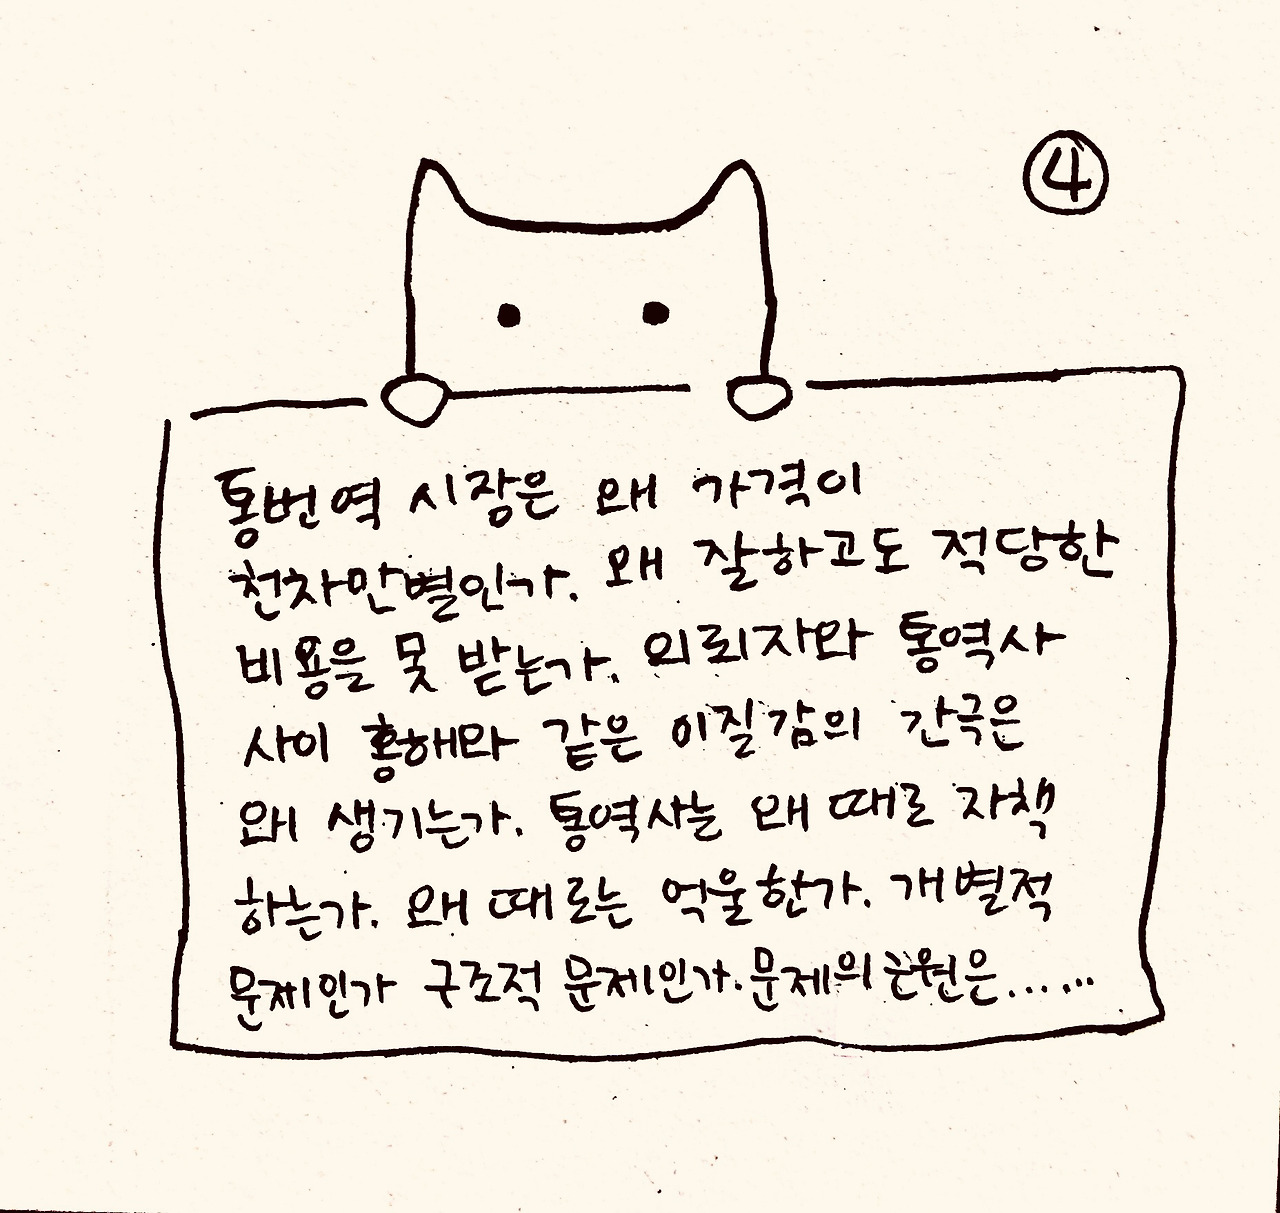 ④
통번역 시장은 왜 가격이
천차만별인가. 왜 잘하고도 적당한
비용을 못 받는가. 의뢰자와 통역사
사이 황해와 같은 이질감의 간극은
왜 생기는가. 통역사는 왜 때로 자책
하는가. 왜 때로는 억울한가. 개별적
문제인가 구조적 문제인가. 문제의 근원은......